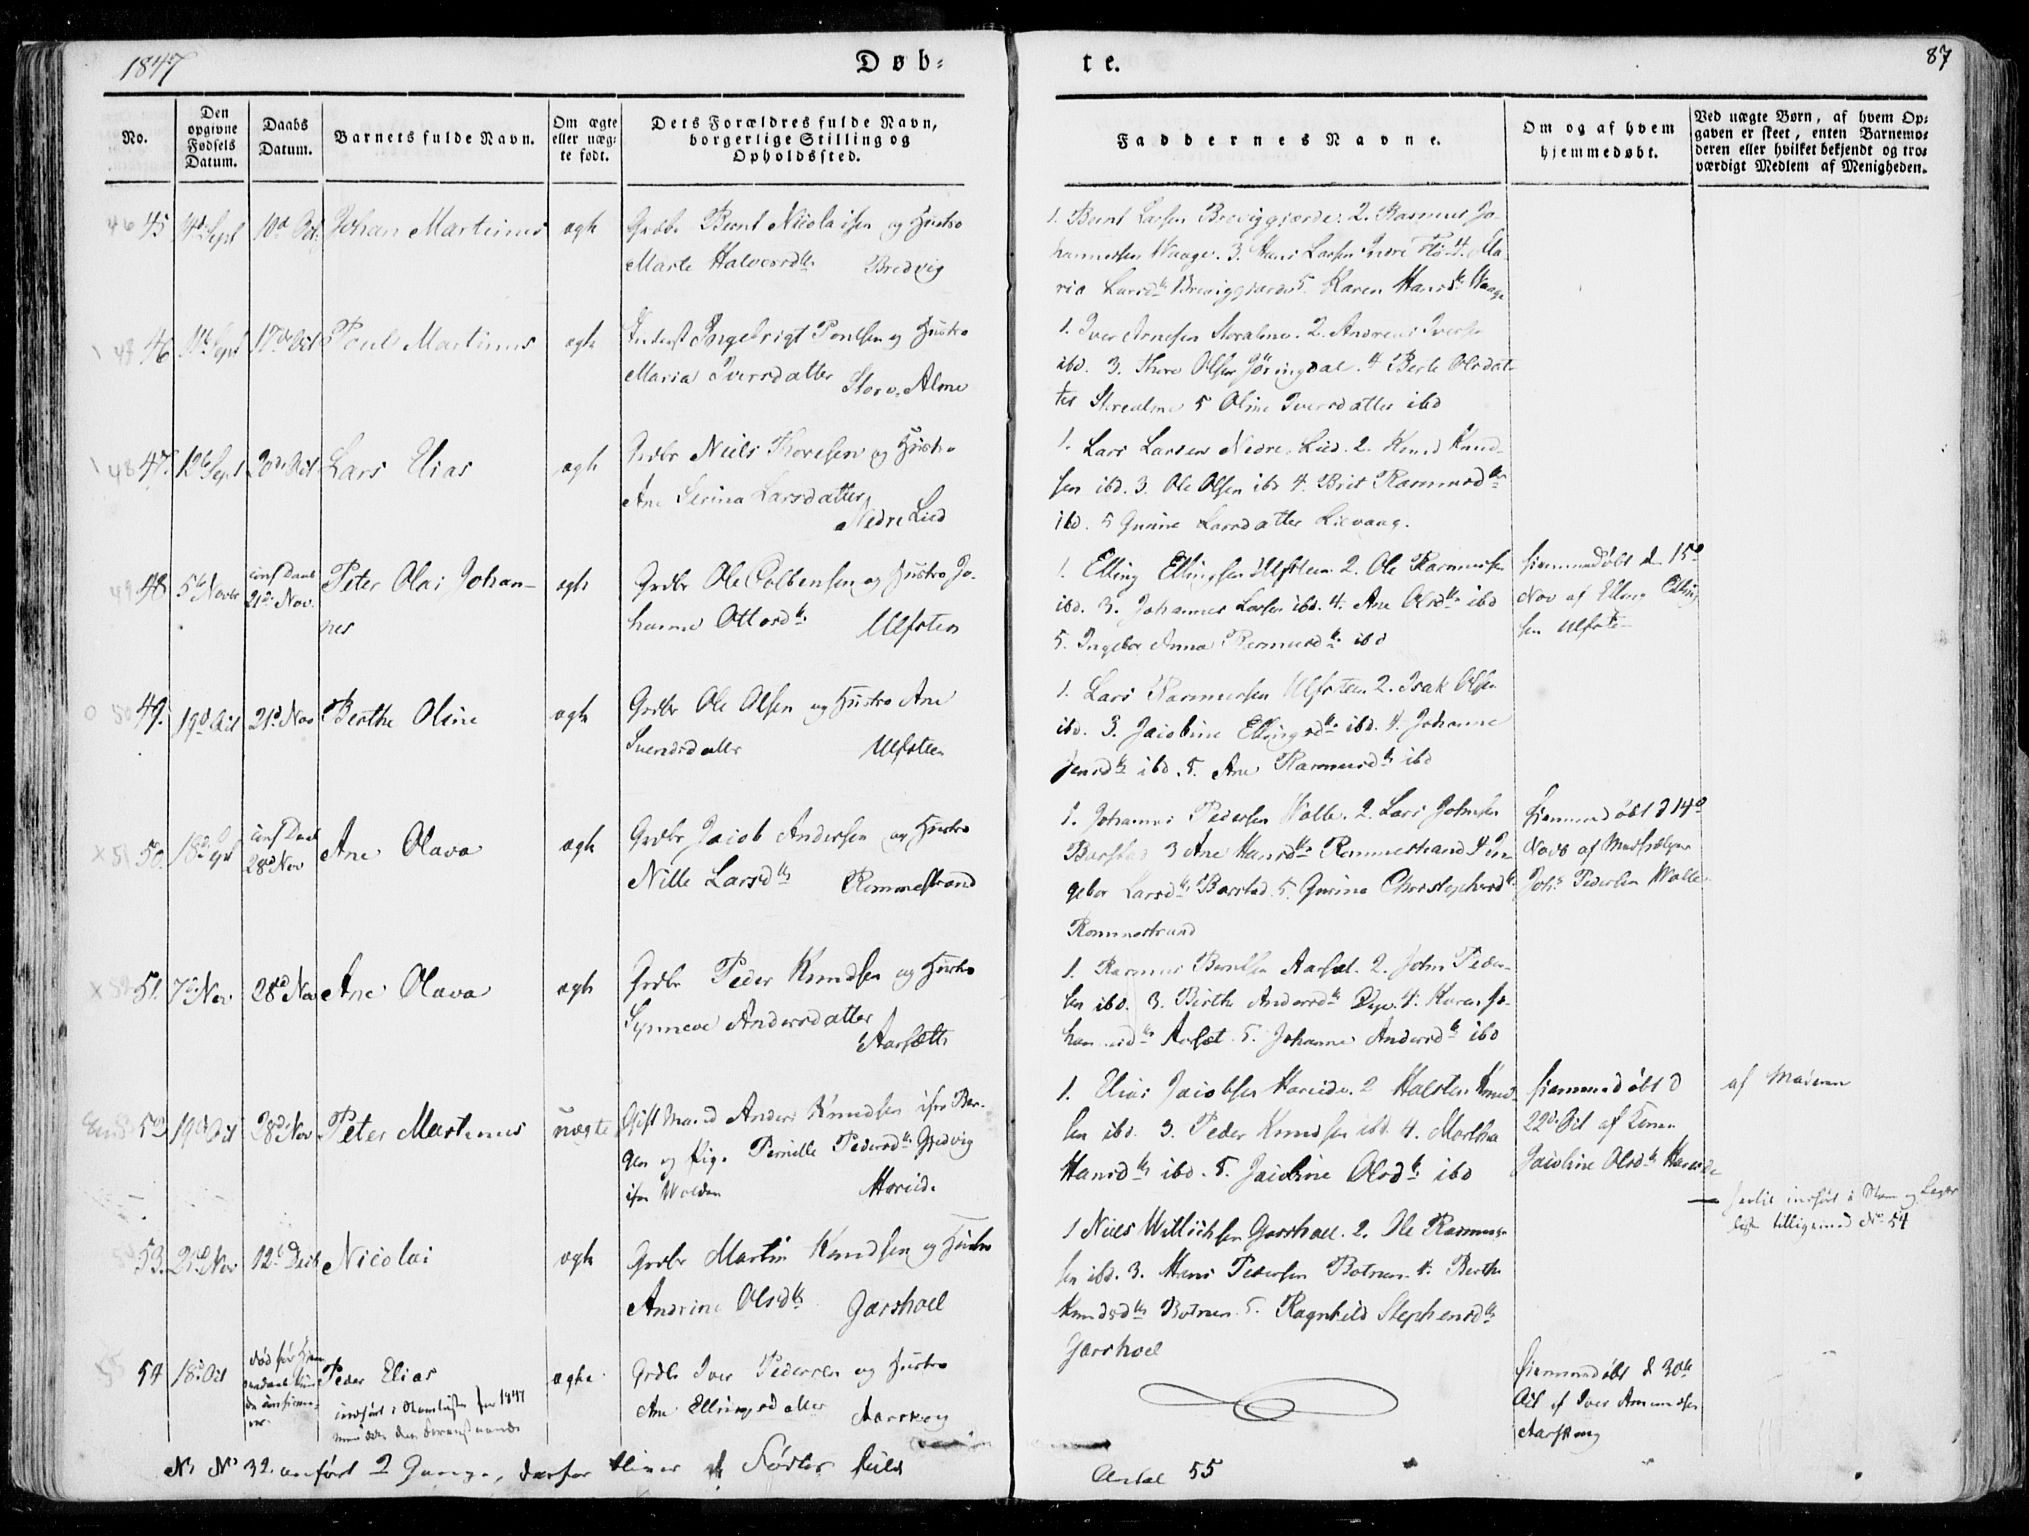 1847
Døb-
te.
87
No.
Den opgivne Fødsels Datum.
Daabs Datum.
Barnets fulde Navn.
Om ægte eller uægte født.
Dets Forældres fulde Navn, borgerlige Stilling og Opholdssted.
Faddernes Navne.
Om og af hvem hjemmedøbt.
Ved uægte Børn, af hvem Opgaven er skeet, enten Barnemoderen eller hvilket bekjendt og troværdigt Medlem af Menigheden.
46 45 Johan Martinus ægte Grdbr Bernt Nicolaisen og Hustro
Marte Halvorsdtr Bredvig
1. Bernt Larsen Breviggjerde. 2. Rasmus Jo-
hannessen Waage. 3. Hans Larsen Indre Flø. 4. Ma-
ria Larsdtr Breviggjerde 5. Karen Hansdtr Waage
46 17de Oct Poul Martinus ægte Inderst Ingebrigt Poulsen og Hustro
Maria Iversdatter Store Alme
1. Iver Arnesen Storalme. 2. Andreas Iversen
ibd. 3. Thore Olsen Jøringdal. 4 Berte Olsdat-
ter Storealme 5 Oline Iversdatter ibd
48 47. 12te Sept Lars Elias ægte Grdbr Niels Thoresen og Hustro
Ane Serina Larsdatter
Nedre Lied
1. Lars Larsen Nedre Lied. 2. Knud Knud-
sen ibd. 3. Ole Olsen ibd 4. Brit Rasmusdtr
ibd. 5 Gurine Larsdatter Lievaag.
49 48 5te Novbr conf Daab
21de Nov. Peter Olai Johan- ægte Grdbr Ole Colbensen og Hustro Jo-
nes
hanne Ottosdtr Ulfsten
1. Elling Ellingsen Ulfsteen. 2. Ole Rasmussen
ibd. 3. Johannes Larsen ibd. 4. Ane Olsdtr ibd
5. Ingebor Anna Rasmusdtr ibd
hiemmedøbt d. 15de
Nov af Elling Elling-
sen Ulfsten
50 49. 19d Oct 21d Nov Berthe Oline ægte Grdbr Ole Olsen og Hustro Ane
Svendsdatter Ulfsteen
1. Lars Rasmussen Ulfsteen 2. Isak Olsen
ibd. 3. Jacobine Ellingsdtr ibd. 4. Johanne
Jensdtr ibd. 5. Ane Rasmusdtr ibd
x 51 50. conf Daab
28d Nov Ane Olava ægte Grdbr Jacob Andersen og Hustro
Nille Larsdtr Remmestrand
1. Johannes Pedersen Wolle. 2. Lars Johnsen
Barstad 3 Ane Hansdtr Rommestrand 4 In-
gebor Larsdtr Barstad. 5. Gurina Christophersdtr
Rommestrand
hiemmedøbt d 14de
Novb af
Johs Pedersen Wolle
x 51. 7de Nov 28de Nov Ane Olava ægte Grdbr Peder Knudsen og Hustro
Synneve Andersdatter
Aarsætte
1. Rasmus Berntsen Aarsæt. 2. John Peder-
sen ibd. 3. Birthe Andersdtr 4. Karen Jo-
hannesdtr Aarsæt. 5. Johanne Andersdtr ibd
52 19d Oct 28d Nov Peter Martinus uægte Gift Mand Anders Knudsen ifra Ber-
gen og Pige Pernille Pedersdtr
ifra Volden Hareid.
1. Elias Jacobsen Hareide. 2 Halsten Knud-
sen ibd. 3. Peder Knudsen ibd. 4. Martha
Hansdtr ibd. 5. Jacobine Olsdtr ibd
hiemmedøbt d
22de Oct af Konen
Jacobine Olsdtr Hareide
af Moderen
53. 12te Decb Nicolai ægte Grdbr Martin Knudsen og Hustro
Andrine Olsdtr Garshoel
1 Niels Willichsen Garshoel. 2. Ole Rasmus-
sen ibd. 3. Hans Pedersen Botnen. 4. Berthe
Knudsdtr Botnen. 5. Ragnhild Stephensdtr
Garshoel
indført i
tilligemed No 54
55 54 18d Oct Peder Elias ægte Grdbr Iver Pedersen og Hustro
indført i for 1847
Ane Ellingsdatter Aarskog
hiemmedøbt d 30te
Oct af Iver Amundsen
Aarskoug
No 32. anført 2 Gange, derfor bliver af Fødte fuld
Antal 55